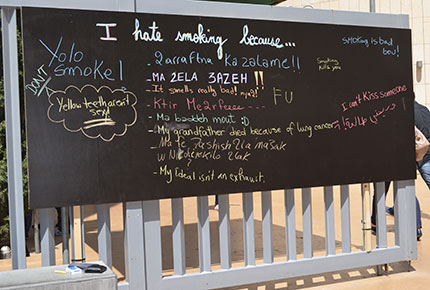 I hate smoking because...
Yolo
DON'T
Smoke!
Yellow teeth arent
sexy!
- 2arraftna Ka zalame!!
- MA 2ELA 3AZEH !!
- It smells really bad!
- Ktir Me2rfeee
FU
- Ma baddeh mout :D
- My grandfather died because of lung cancer
- Ma fe
- My ideal isn't an exhaust.
Smoking is bad
Smoking
kills you
I can't Kiss someone